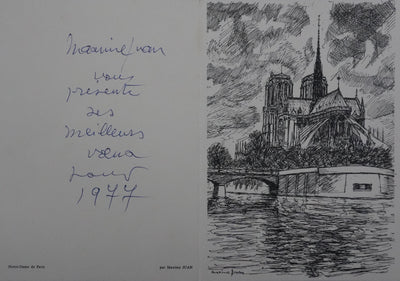 Maxime Juan
vous
présente
ses
meilleurs
vœux
pour
1977
Notre-Dame de Paris
par Maxime JUAN
Maxime Juan